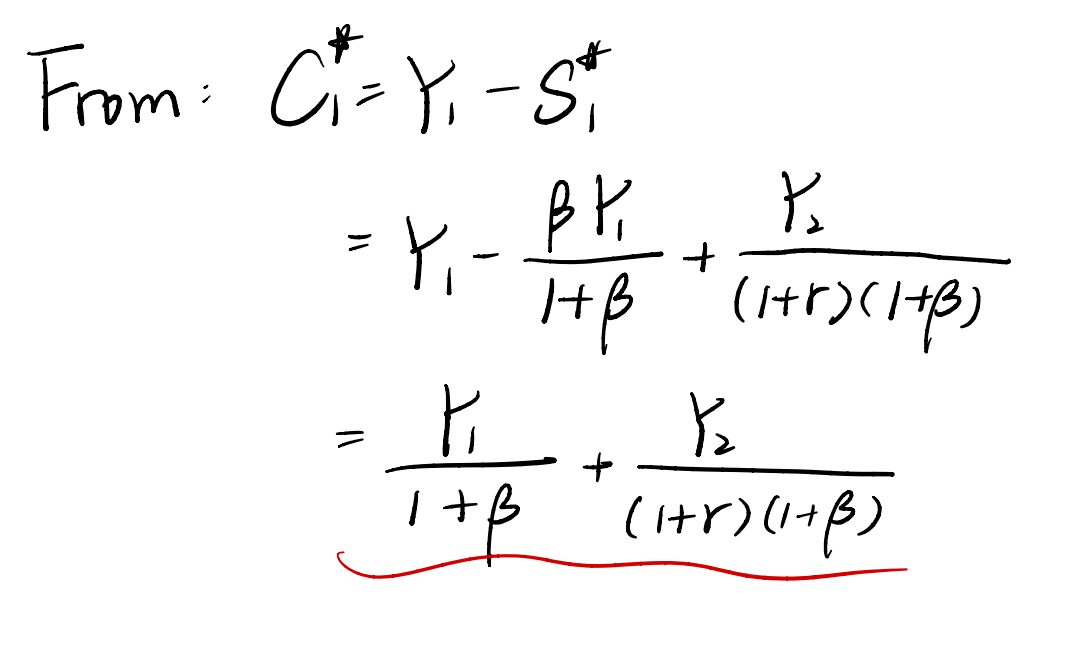 From: C₁* = Y₁ - S₁*
= Y₁ - βY₁/(1+β) + Y₂/((1+r)(1+β))
= Y₁/(1+β) + Y₂/((1+r)(1+β))